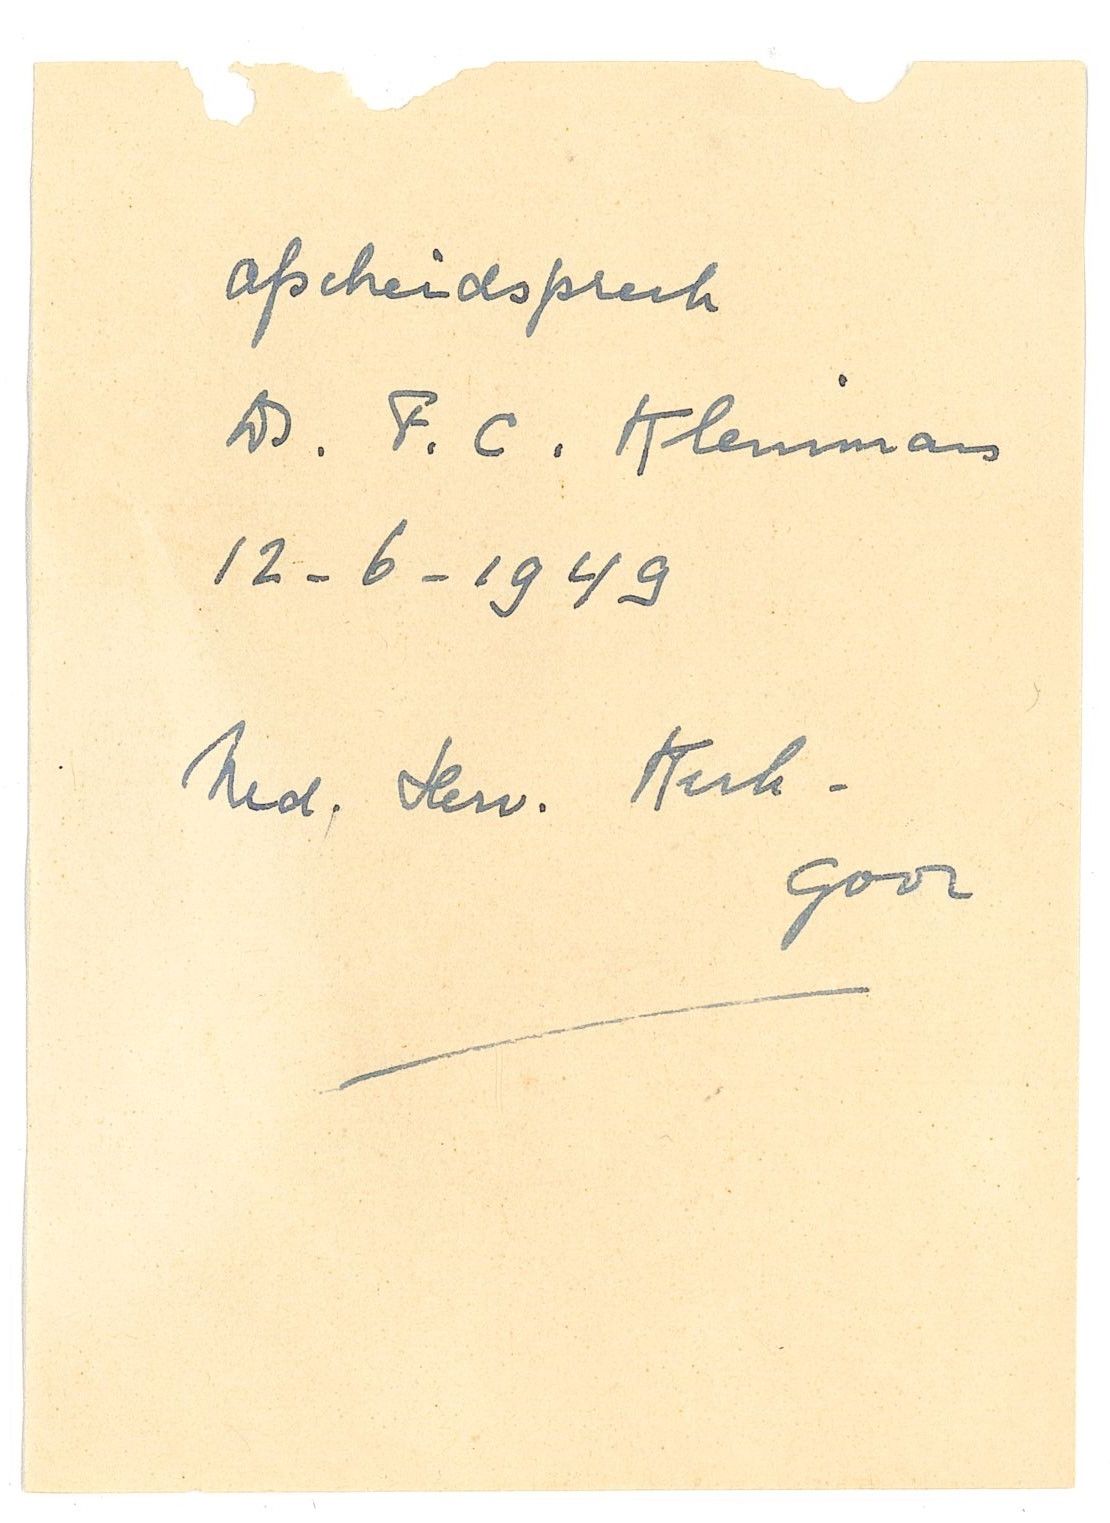 afscheidspreek
Ds. F. C. Kleinmans
12-6-1949
Ned. Herv. Kerk -
Goor